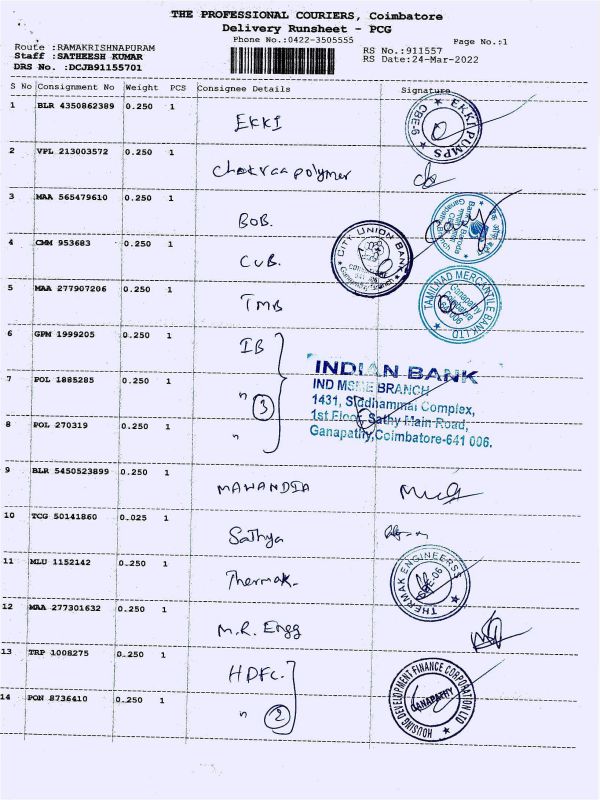 THE PROFESSIONAL COURIERS, Coimbatore
Delivery Runsheet - PCG
Phone No.:0422-3505555
Page No.:1
Route :RAMAKRISHNAPURAM
RS No.:911557
Staff :SATHEESH KUMAR
RS Date:24-Mar-2022
DRS No. :DCJB91155701
S No Consignment No Weight PCS Consignee Details Signature
1 BLR 4350862389 0.250 1 EKKI
EKKI PUMPS CBE-6
2 VPL 213003572 0.250 1 Chakraa polymer
3 MAA 565479610 0.250 1 BOB.
4 CMM 953683 0.250 1 CUB.
CITY UNION BANK
5 MAA 277907206 0.250 1 TMB
TAMILNAD MERCANTILE BANK LTD
Ganapathy
Coimbatore
641 006
6 GPM 1999205 0.250 1 IB
7 POL 1885285 0.250 1 " 3
8 POL 270319 0.250 1 "
INDIAN BANK
IND MSME BRANCH
1431, Siddhammal Complex,
1st Floor, Sathy Main Road,
Ganapathy,Coimbatore-641 006.
9 BLR 5450523899 0.250 1 MAHANDIA
10 TCG 50141860 0.025 1 Sathya
11 MLU 1152142 0.250 1 Thermak.
THERMAK ENGINEERSS CBE-06
12 MAA 277301632 0.250 1 M.R. Engg
13 TRP 1008275 0.250 1 HDFC.
14 PON 8736410 0.250 1 " 2
HOUSING DEVELOPMENT FINANCE CORPORATION LTD
GANAPATHY